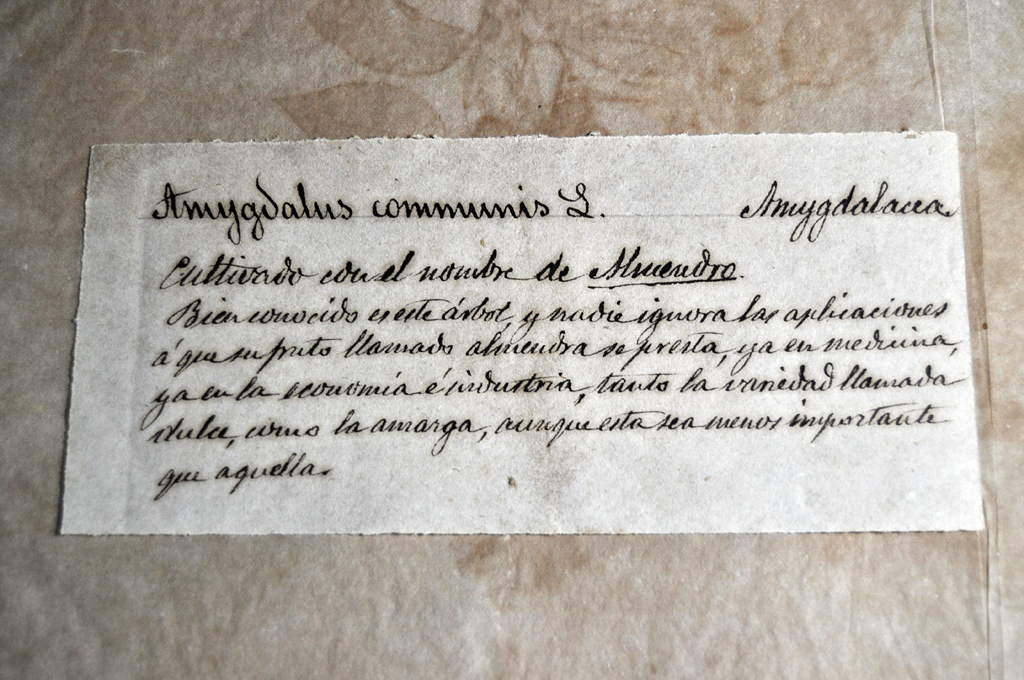 Amygdalus communis L. Amygdalacea.
Cultivado con el nombre de Almendro.
Bien conocido es este árbol, y nadie ignora las aplicaciones
á que su fruto llamado almendra se presta, ya en medicina,
ya en la economía é industria, tanto la variedad llamada
dulce, como la amarga, aunque esta sea menos importante
que aquella.